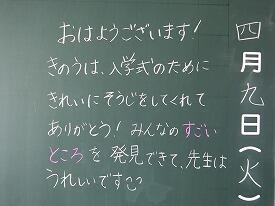 四月九日(火)
おはようございます!
きのうは、入学式のために
きれいにそうじをしてくれて
ありがとう! みんなのすごい
ところを発見できて、先生は
うれしいです